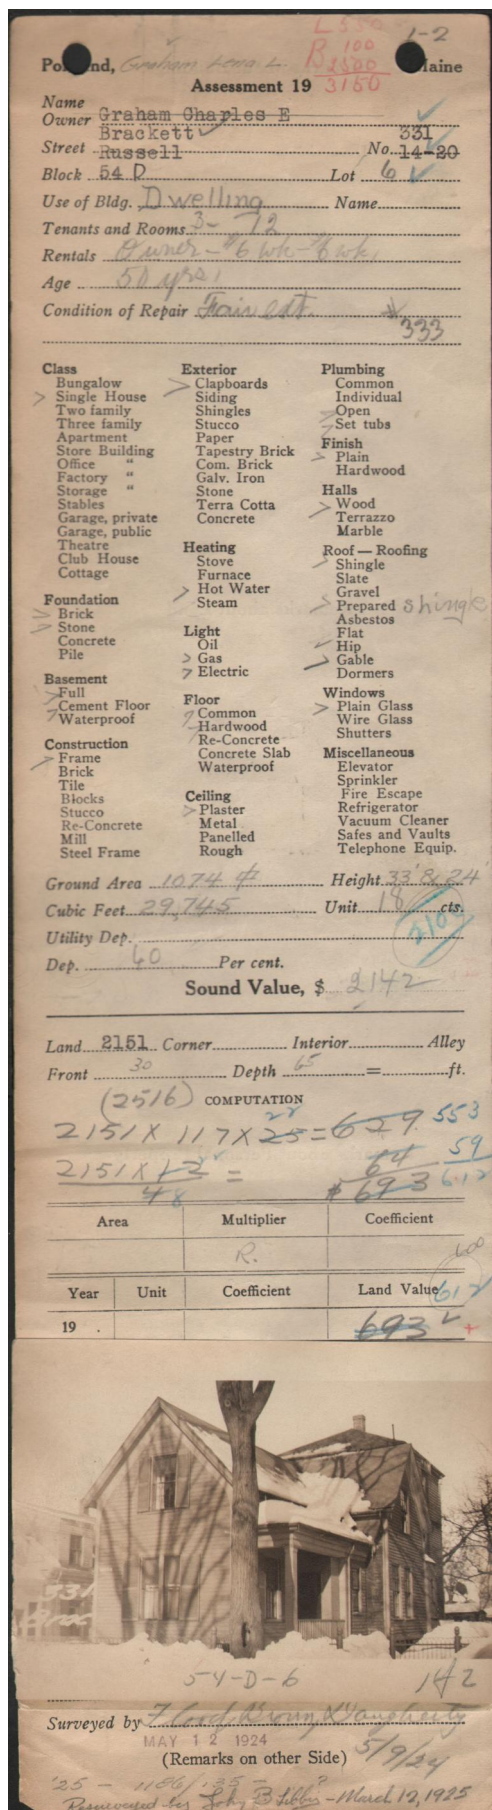 L 550
R 100
2500
3150
1-2
Portland, Graham Lena L. Maine
Assessment 19
Name
Owner Graham Charles E
Brackett 331
Street Russell No. 14-20
Block 54 D Lot 6
Use of Bldg. Dwelling Name
Tenants and Rooms 3- 12
Rentals Owner - $6 wk - $6 wk.
Age 50 yrs.
Condition of Repair Fair ext.
333
Class
Bungalow
Single House
Two family
Three family
Apartment
Store Building
Office "
Factory "
Storage "
Stables
Garage, private
Garage, public
Theatre
Club House
Cottage
Foundation
Brick
Stone
Concrete
Pile
Basement
Full
Cement Floor
Waterproof
Construction
Frame
Brick
Tile
Blocks
Stucco
Re-Concrete
Mill
Steel Frame
Exterior
Clapboards
Siding
Shingles
Stucco
Paper
Tapestry Brick
Com. Brick
Galv. Iron
Stone
Terra Cotta
Concrete
Heating
Stove
Furnace
Hot Water
Steam
Light
Oil
Gas
Electric
Floor
Common
Hardwood
Re-Concrete
Concrete Slab
Waterproof
Ceiling
Plaster
Metal
Panelled
Rough
Plumbing
Common
Individual
Open
Set tubs
Finish
Plain
Hardwood
Halls
Wood
Terrazzo
Marble
Roof — Roofing
Shingle
Slate
Gravel
Prepared shingle
Asbestos
Flat
Hip
Gable
Dormers
Windows
Plain Glass
Wire Glass
Shutters
Miscellaneous
Elevator
Sprinkler
Fire Escape
Refrigerator
Vacuum Cleaner
Safes and Vaults
Telephone Equip.
Ground Area 1074 Height 33' & 24'
Cubic Feet 29,745 Unit 18 cts.
2100
Utility Dep.
Dep. 60 Per cent.
Sound Value, $ 2142
Land 2151 Corner Interior Alley
Front 30 Depth 65 = ft.
(2516) COMPUTATION
22
2151 X 117 X 25 = 629 553
2151 X 12 = 64 59
48 $ 693 612
Area Multiplier Coefficient
R.
600
Year Unit Coefficient Land Value 612
19 . 693
331
Brac
54-D-6 142
Surveyed by Flood Brown Daugherty
MAY 12 1924
5/9/24
(Remarks on other Side)
'25 - 1186/135 - ?
Resurveyed by John B Libby - March 12, 1925